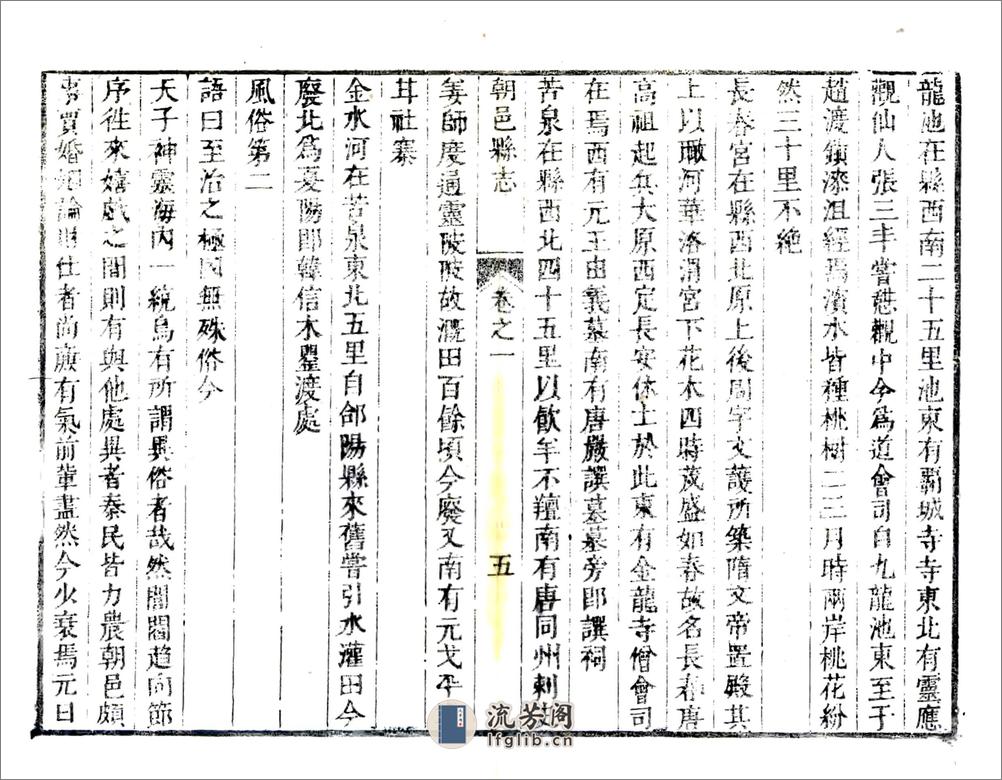 龍池在縣西南二十五里池東有覇城寺寺東北有靈應
觀仙人張三丰嘗憇觀中今爲道會司自九龍池東至于
趙渡鎮漆沮經焉濱水皆種桃樹二三月時兩岸桃花紛
然三十里不絶
長春宮在縣西北原上後周宇文護所築隋文帝置殿其
上以瞰河華洛渭宮下花木四時茂盛如春故名長春唐
高祖起兵大原西定長安休士於此東有金龍寺僧會司
在焉西有元王由義墓南有唐嚴譔墓墓旁即譔祠
苦泉在縣西北四十五里以飲羊不羶南有唐同州刺史
朝邑縣志
卷之一
五
姜師度通靈陂陂故漑田百餘頃今廢又南有元戈平
耳社寨
金水河在苦泉東北五里自郃陽縣來舊嘗引水灌田今
廢北爲夏陽即韓信木罌渡處
風俗第二
語曰至治之極國無殊俗今
天子神靈海内一統烏有所謂異俗者哉然閭閻趨向節
序徃來嬉戯之間則有與他處異者秦民皆力農朝邑頗
事賈婚姻論財仕者尚亷有氣前輩盡然今少衰焉元日
流芳阁
lfglib.cn